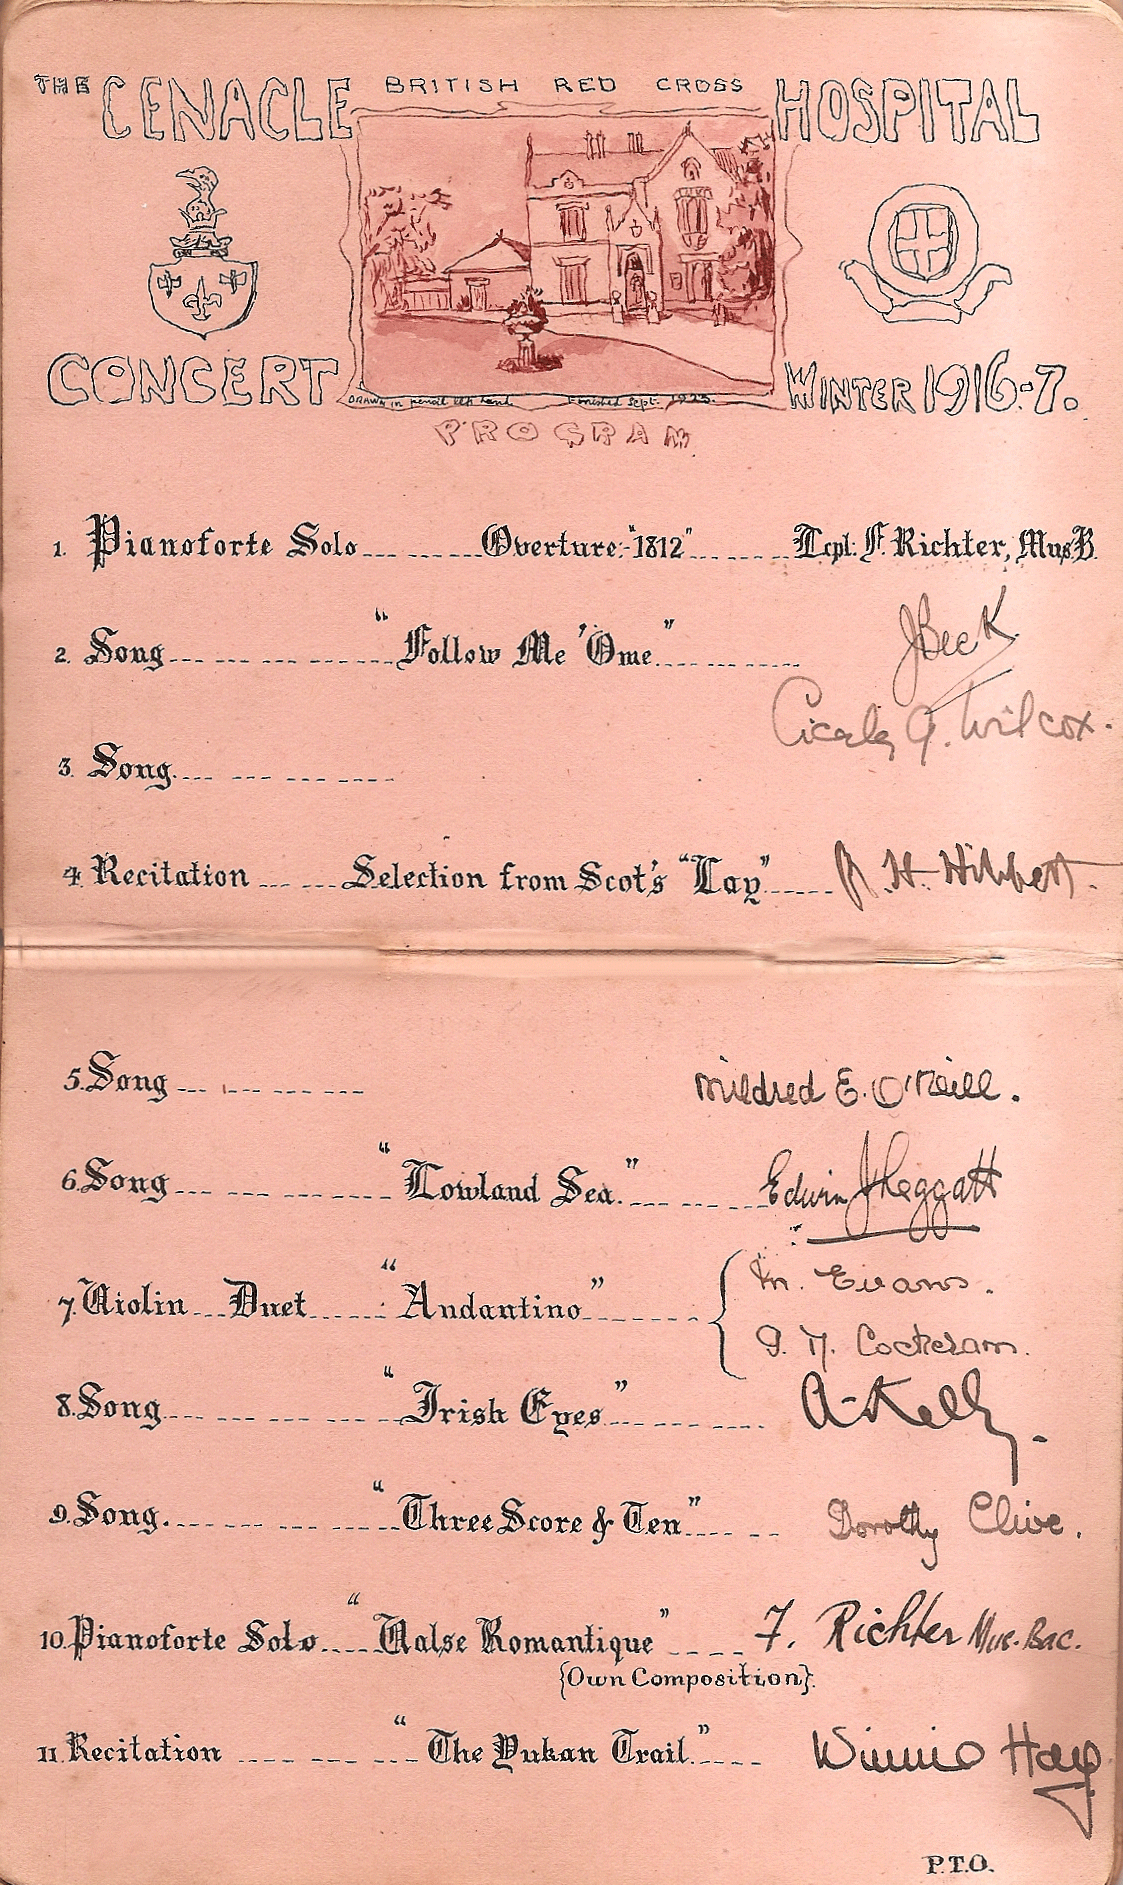 THE CENACLE BRITISH RED CROSS HOSPITAL
CONCERT WINTER 1916-7.
DRAWN in pencil left hand. Finished Sept. 1923.
PROGRAM
1. Pianoforte Solo Overture:- "1812" Lcpl: F. Richter, Mus.B.
2. Song "Follow Me 'Ome" J Beck
Cicely G. Wilcox.
3. Song.
4. Recitation Selection from Scot's "Lay" H. Hibbert.
5. Song Mildred E. O'Neill.
6. Song "Lowland Sea." Edwin J Leggatt
7. Violin Duet "Andantino" M. Evans.
M. Cockeram.
8. Song "Irish Eyes" A. Kelly.
9. Song. "Three Score & Ten" Dorothy Clive.
10. Pianoforte Solo "Valse Romantique" F. Richter Mus. Bac.
{Own Composition}.
11. Recitation "The Yukan Trail." Winnie Hay
P.T.O.